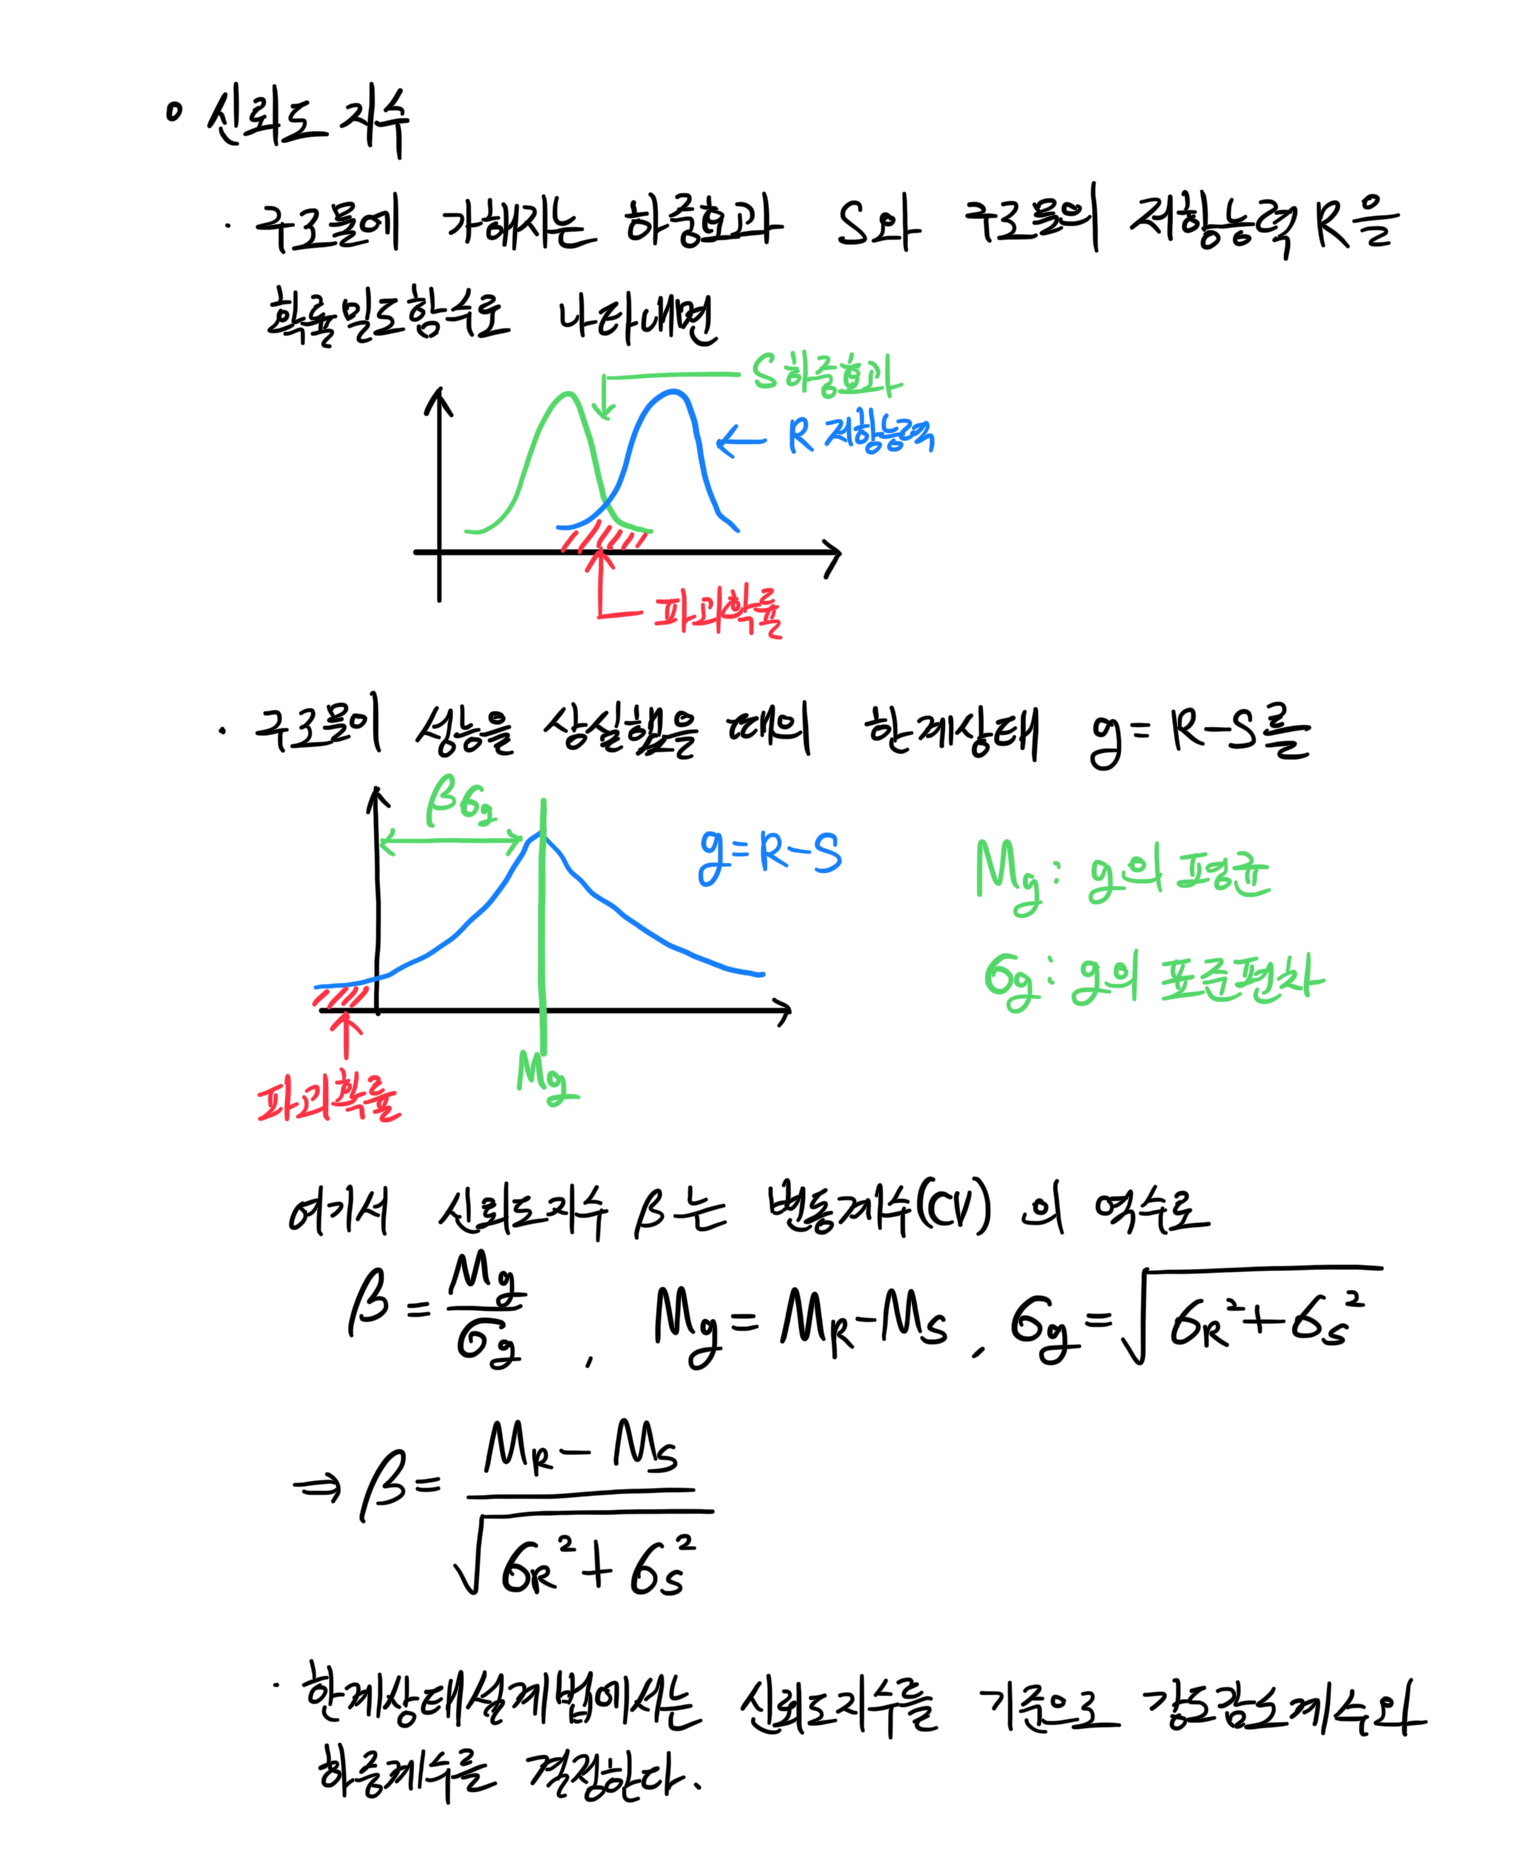 ° 신뢰도 지수
· 구조물에 가해지는 하중효과 S와 구조물의 저항능력 R을
확률밀도함수로 나타내면
S 하중효과
R 저항능력
파괴확률
· 구조물이 성능을 상실했을 때의 한계상태 g = R-S를
βσg
g=R-S
Mg : g의 평균
σg : g의 표준편차
Mg
파괴확률
여기서 신뢰도지수 β는 변동계수(CV)의 역수로
β = Mg/σg , Mg = MR-MS , σg = √(σR²+σS²)
⇒ β = (MR - MS)/√(σR² + σS²)
· 한계상태설계법에서는 신뢰도지수를 기준으로 강도감소계수와
하중계수를 결정한다.